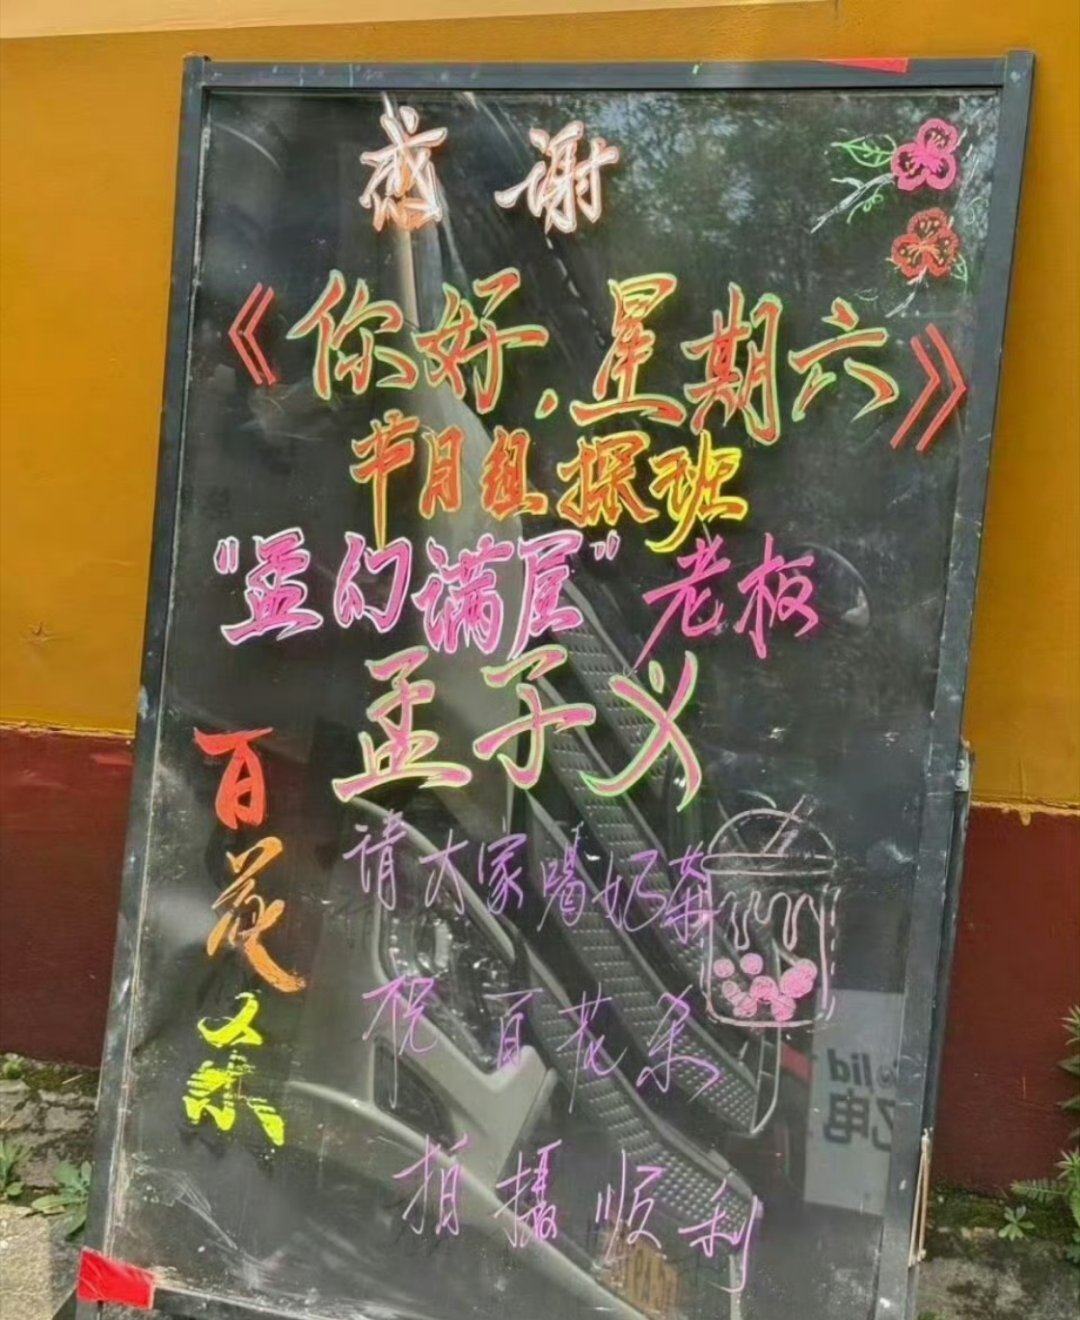 感谢
《你好.星期六》
节目组探班
"孟幻满屋"老板
孟子义
请大家喝奶茶
祝百花杀
拍摄顺利
百花杀